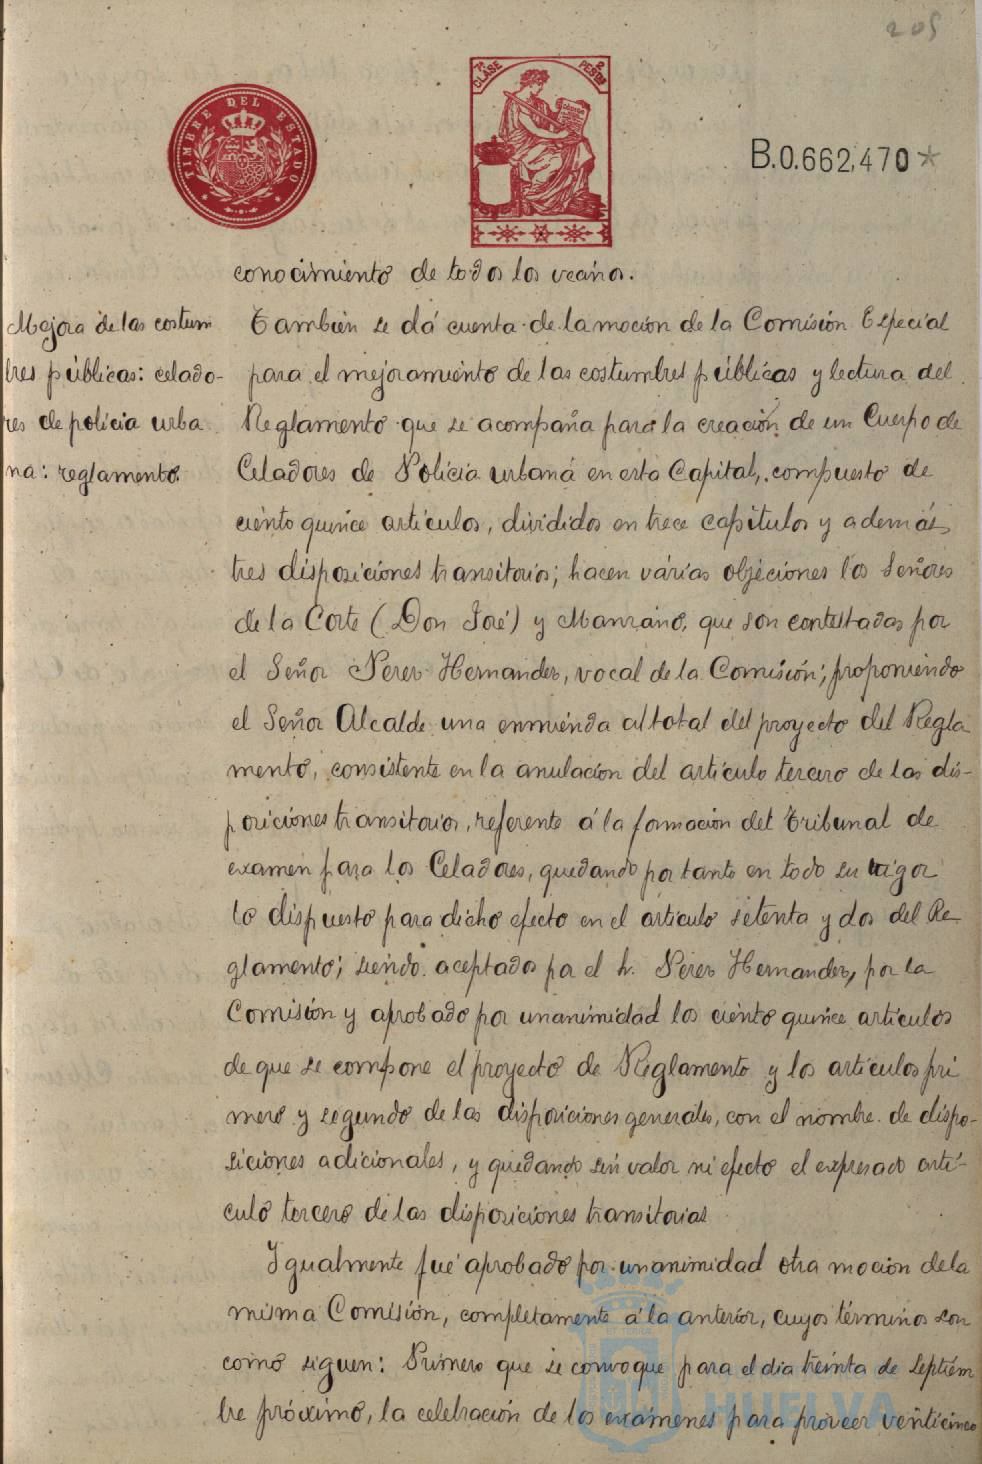 205
TIMBRE DEL ESTADO
7ª CLASE
2 PESETAS
B.0.662,470*
conocimiento de todos los vecinos.
Mejora de las costum
bres públicas: celado-
res de policía urba
na: reglamento.
También se dá cuenta de la moción de la Comisión Especial
para el mejoramiento de las costumbres públicas y lectura del
Reglamento que se acompaña para la creación de un Cuerpo de
Celadores de Policía urbana en esta Capital, compuesto de
ciento quince artículos, divididos en trece capítulos y además
tres disposiciones transitorios; hacen várias objeciones los Señores
de la Corte (Don José) y Manzano, que son contestadas por
el Señor Perez Hernandez, vocal de la Comisión; proponiendo
el Señor Alcalde una enmienda al total del proyecto del Regla
mento, consistente en la anulación del artículo tercero de las dis-
posiciones transitorios, referente á la formación del Tribunal de
examen para los Celadores, quedando por tanto en todo su vigor
lo dispuesto para dicho efecto en el artículo setenta y dos del Re-
glamento; siendo aceptados por el Sr. Perez Hernandez, por la
Comisión y aprobado por unanimidad los ciento quince artículos
de que se compone el proyecto de Reglamento y los artículos pri
mero y segundo de las disposiciones generales, con el nombre de dispo-
siciones adicionales, y quedando sin valor ni efecto el expresado artí-
culo tercero de las disposiciones transitorias
Igualmente fué aprobado por unanimidad otra moción de la
misma Comisión, completamente á la anterior, cuyos términos son
como siguen: Primero que se convoque para el dia treinta de Septiem
bre próximo, la celebración de los exámenes para proveer veinticinco
HUELVA